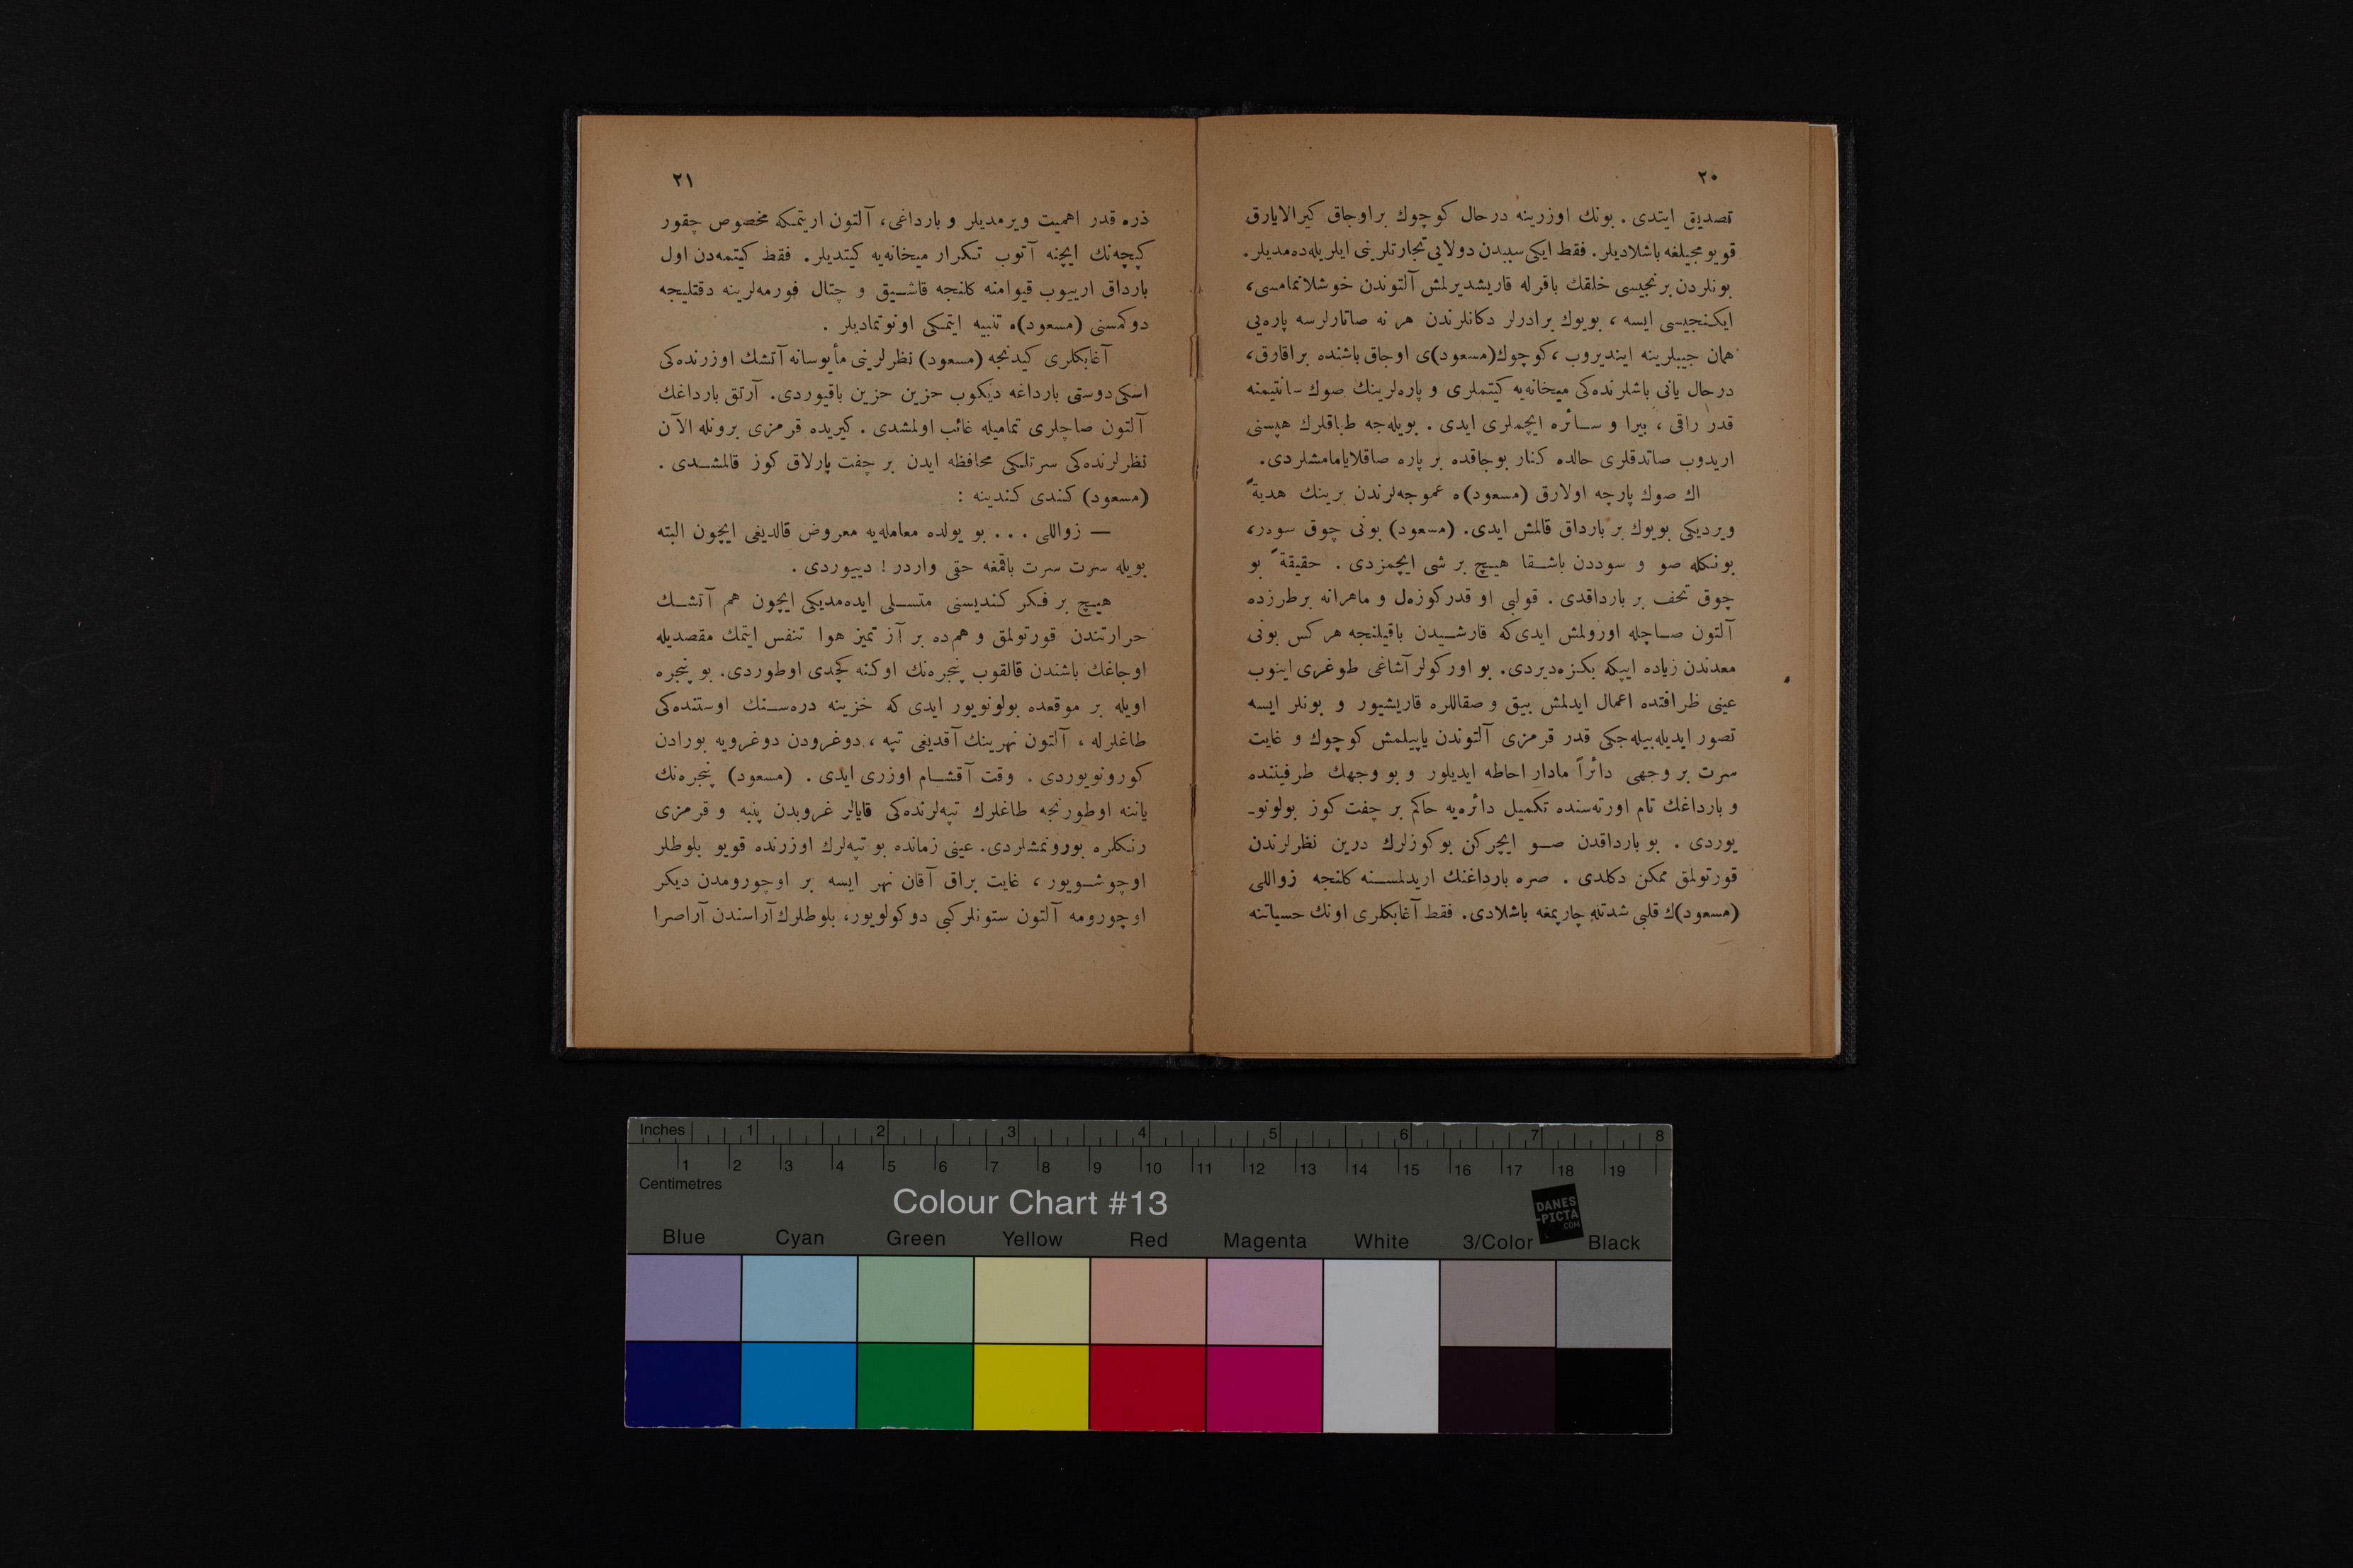 ٢٠
تصدیق ایتدی . بونك اوزرینه درحال كوچوك براوجاق كیرالایارق
قویومجیلغه باشلادیلر. فقط ایكی سببدن دولایی تجارتلرینی ایلریله‌ده‌مدیلر.
بونلردن برنجیسی خلقك باقرله قاریشدیرلمش آلتوندن خوشلانمامسی،
ایكنجیسی ایسه ، بویوك برادرلر دكانلرندن هر نه صاتارلرسه پاره‌یی
همان جیبلرینه ایندیروب ، كوچوك (مسعود)ی اوجاق باشنده براقارق،
درحال یانی باشلرنده‌كی میخانه‌یه كیتملری و پاره‌لرینك صوك سانتیمنه
قدر راقی ، بیرا و سائره ایچملری ایدی . بویله‌جه طباقلرك هپسنی
اریدوب صاتدقلری حالده كنار بوجاقده بر پاره صاقلایامامشلردی.
اك صوك پارچه اولارق (مسعود)ه عموجه‌لرندن برینك هدیةً
ویردیكی بویوك بر بارداق قالمش ایدی. (مسعود) بونی چوق سوه‌ر،
بونكله صو و سوددن باشقا هیچ بر شی ایچمزدی . حقیقةً بو
چوق تحف بر بارداقدی . قولپی او قدر كوزه‌ل و ماهرانه برطرزده
آلتون صاچله اورولمش ایدی‌كه قارشیدن باقیلنجه هركس بونی
معدندن زیاده ایپكه بكزه‌دیردی. بو اوركولر آشاغی طوغری اینوب
عینی ظرافتده اعمال ایدلمش بیق و صقاللره قاریشیور و بونلر ایسه
تصور ایدیله‌بیله‌جكی قدر قرمزی آلتوندن یاپیلمش كوچوك و غایت
سرت بر وجهی دائراً مادار احاطه ایدیلور و بو وجهك طرفیننده
و بارداغك تام اورته‌سنده تكمیل دائره‌یه حاكم بر چفت كوز بولونو-
یوردی . بو بارداقدن صو ایچركن بوكوزلرك درین نظرلرندن
قورتولمق ممكن دكلدی . صره بارداغنك اریدلمسنه كلنجه زواللی
(مسعود)ك قلبی شدتله چارپمغه باشلادی. فقط آغابكلری اونك حسیاتنه
٢١
ذره قدر اهمیت ویرمدیلر و بارداغی، آلتون اریتمكه مخصوص چقور
كپچه‌نك ایچنه آتوب تكرار میخانه‌یه كیتدیلر. فقط كیتمه‌دن اول
بارداق ارییوب قیوامنه كلنجه قاشیق و چتال فورمه‌لرینه دقتلیجه
دوكمسنی (مسعود)ه تنبیه ایتمكی اونوتمادیلر .
آغابكلری كیدنجه (مسعود) نظرلرینی مأیوسانه آتشك اوزرنده‌كی
اسكی دوستی بارداغه دیكوب حزین حزین باقیوردی. آرتق بارداغك
آلتون صاچلری تمامیله غائب اولمشدی . كیریده قرمزی برونله الآن
نظرلرنده‌كی سرتلكی محافظه ایدن بر چفت پارلاق كوز قالمشدی .
(مسعود) كندی كندینه :
— زواللی . . . بو یولده معامله‌یه معروض قالدیغی ایچون البته
بویله سرت سرت باقمغه حقی واردر ! دیییوردی .
هیچ بر فكر كندیسنی متسلی ایده‌مدیكی ایچون هم آتشك
حرارتندن قورتولمق و هم‌ده بر آز تمیز هوا تنفس ایتمك مقصدیله
اوجاغك باشندن قالقوب پنجره‌نك اوكنه كچدی اوطوردی. بو پنجره
اویله بر موقعده بولونویور ایدی كه خزینه دره‌سنك اوستنده‌كی
طاغلرله ، آلتون نهرینك آقدیغی تپه ، دوغرودن دوغرویه بورادن
كورونویوردی . وقت آقشام اوزری ایدی . (مسعود) پنجره‌نك
یاننه اوطورنجه طاغلرك تپه‌لرنده‌كی قایالر غروبدن پنبه و قرمزی
رنكلره بورونمشلردی. عینی زمانده بو تپه‌لرك اوزرنده قویو بلوطلر
اوچوشویور ، غایت براق آقان نهر ایسه بر اوچورومدن دیكر
اوچورومه آلتون ستونلركبی دوكولویور، بلوطلرك آراسندن آراصرا
Inches 1 2 3 4 5 6 7 8
1 2 3 4 5 6 7 8 9 10 11 12 13 14 15 16 17 18 19
Centimetres
Colour Chart #13
DANES
-PICTA
.COM
Blue Cyan Green Yellow Red Magenta White 3/Color Black